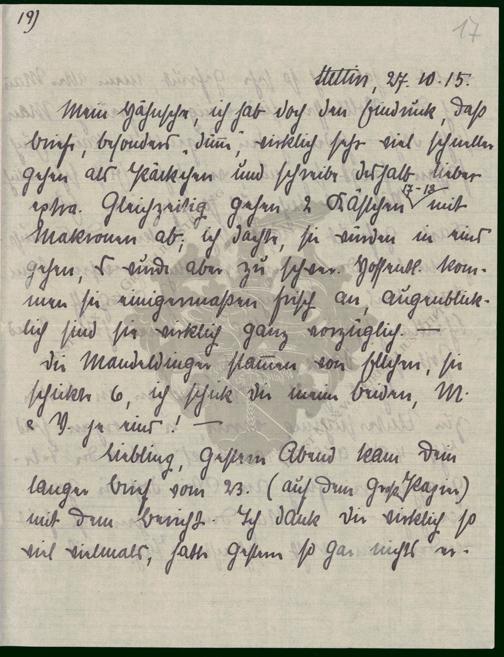 19)
17
Stettin, 27.10.15.
Mein Hähnchen, ich hab doch den Eindruck, daß
briefe, besonders „dünne", wirklich sehr viel schneller
gehen als Päckchen und schreibe deshalb lieber
extra. Gleichzeitig gehen 2 Kästchen 17-18 mit
Makronen ab; ich dachte, sie würden in eins
gehen, wurde aber zu schwer. Hoffentl. kom-
men sie einigermaßen frisch an, augenblick-
lich sind sie wirklich ganz vorzüglich. —
Die Mandeldinger stammen von, sie
schickte 6, ich schick dir meine beiden, M.
& V. je eins! —
Liebling, gestern Abend kam Dein
langer Brief vom 23. (auf dem Groß)
mit dem Bericht. Ich dank Dir wirklich so
viel vielmals, hatte gestern so gar nichts er-